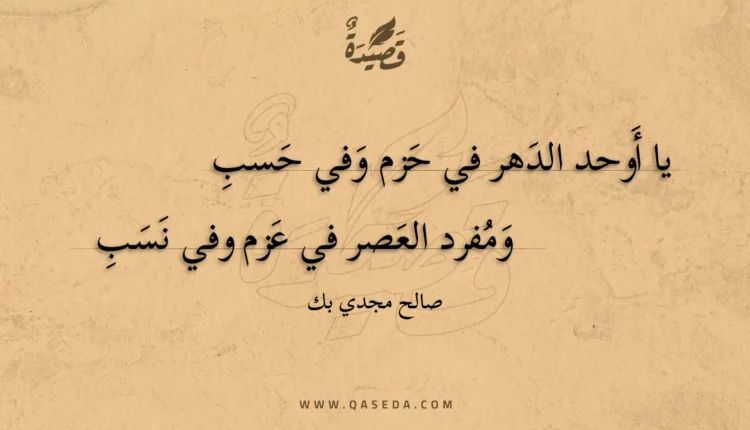 قَصِيْدَةٌ
يا أَوحد الدَهر في حَزم وَفي حَسبِ
وَمُفرد العَصر في عَزم وفي نَسَبِ
صالح مجدي بك
WWW.QASEDA.COM